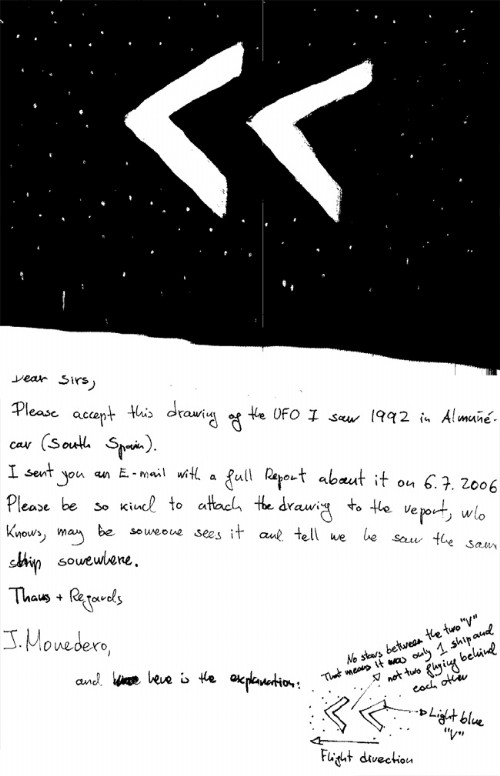 Dear Sirs,
Please accept this drawing of the UFO I saw 1992 in Almuñé-
car (South Spain).
I sent you an E-mail with a full Report about it on 6.7.2006
Please be so kind to attach the drawing to the report, who
Knows, may be someone sees it and tell me he saw the same
ship somewhere.
Thans + Regards
J. Monedero,
and here is the explanation:
No stars between the two "V"
That means it was only 1 ship and
not two flying behind
each other
Light blue
"V"
Flight direction